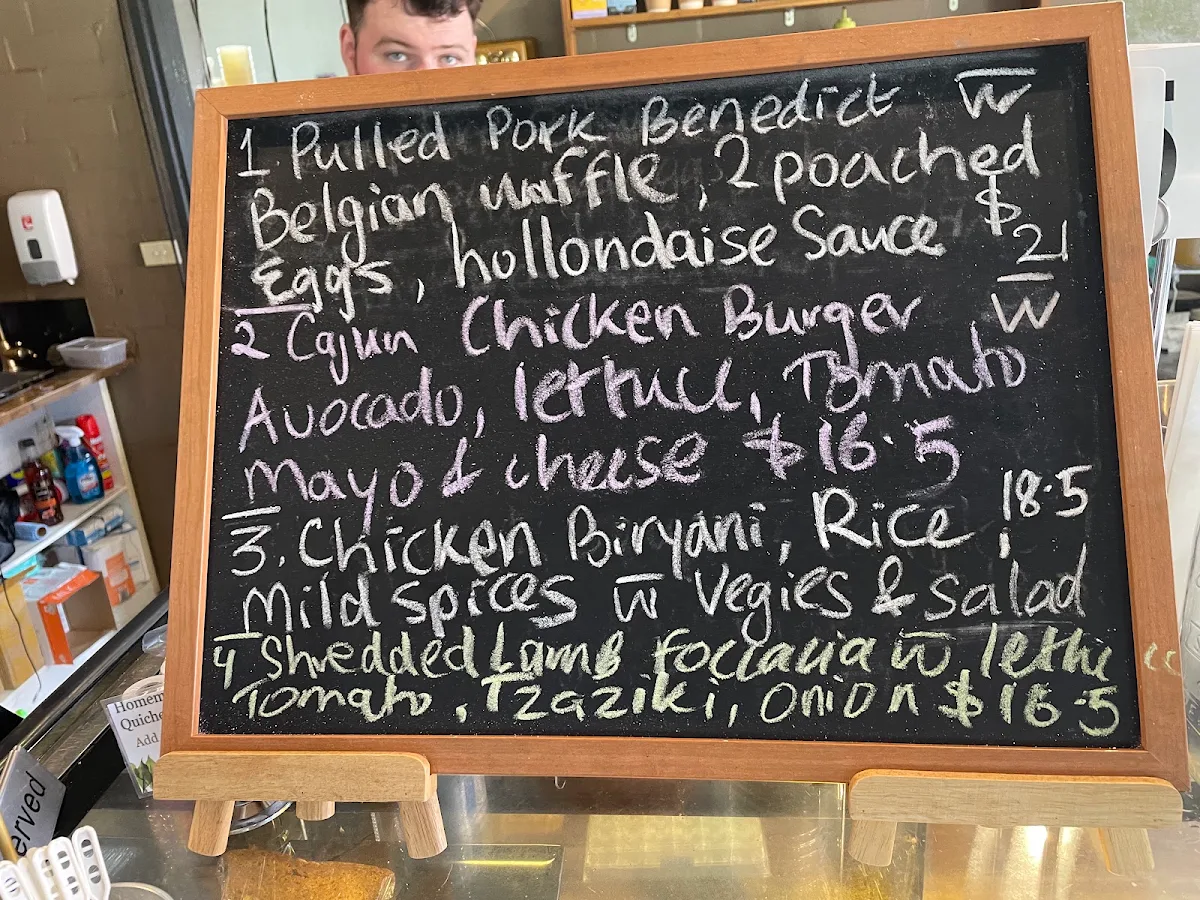 1. Pulled Pork Benedict w̅
Belgian waffle, 2 poached
Eggs, hollondaise Sauce $21
2 Cajun Chicken Burger w̅
Avocado, lettuce, Tomato
Mayo & cheese $16.5
3. Chicken Biryani, Rice, 18.5
Mild spices w̅ Vegies & salad
4 Shredded Lamb foccacia w̅ lettucc
Tomato, Tzaziki, onion $16.5
Homem
Quiche
Add
erved